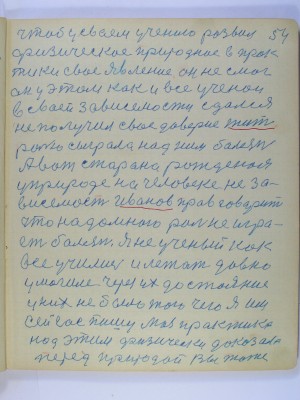 чтоб у своем учению развил 54
физическое природное в прак
тики свое явление он не смог
он у этом как и все ученои
в своей зависемости сдался
не получил свое доверие
рож сыграла над ним болезн
А вот старана рожденоя
у природе на человеке не за-
висемост Иванов прав говорит
что надомного рол не игра-
ет болезн Я не ученый как
все училис и летат давно
умогиле через их достояние
у них не было того чего я им
сейчас пишу моя практика
над этим физически доказала
перед природой Вы тоже